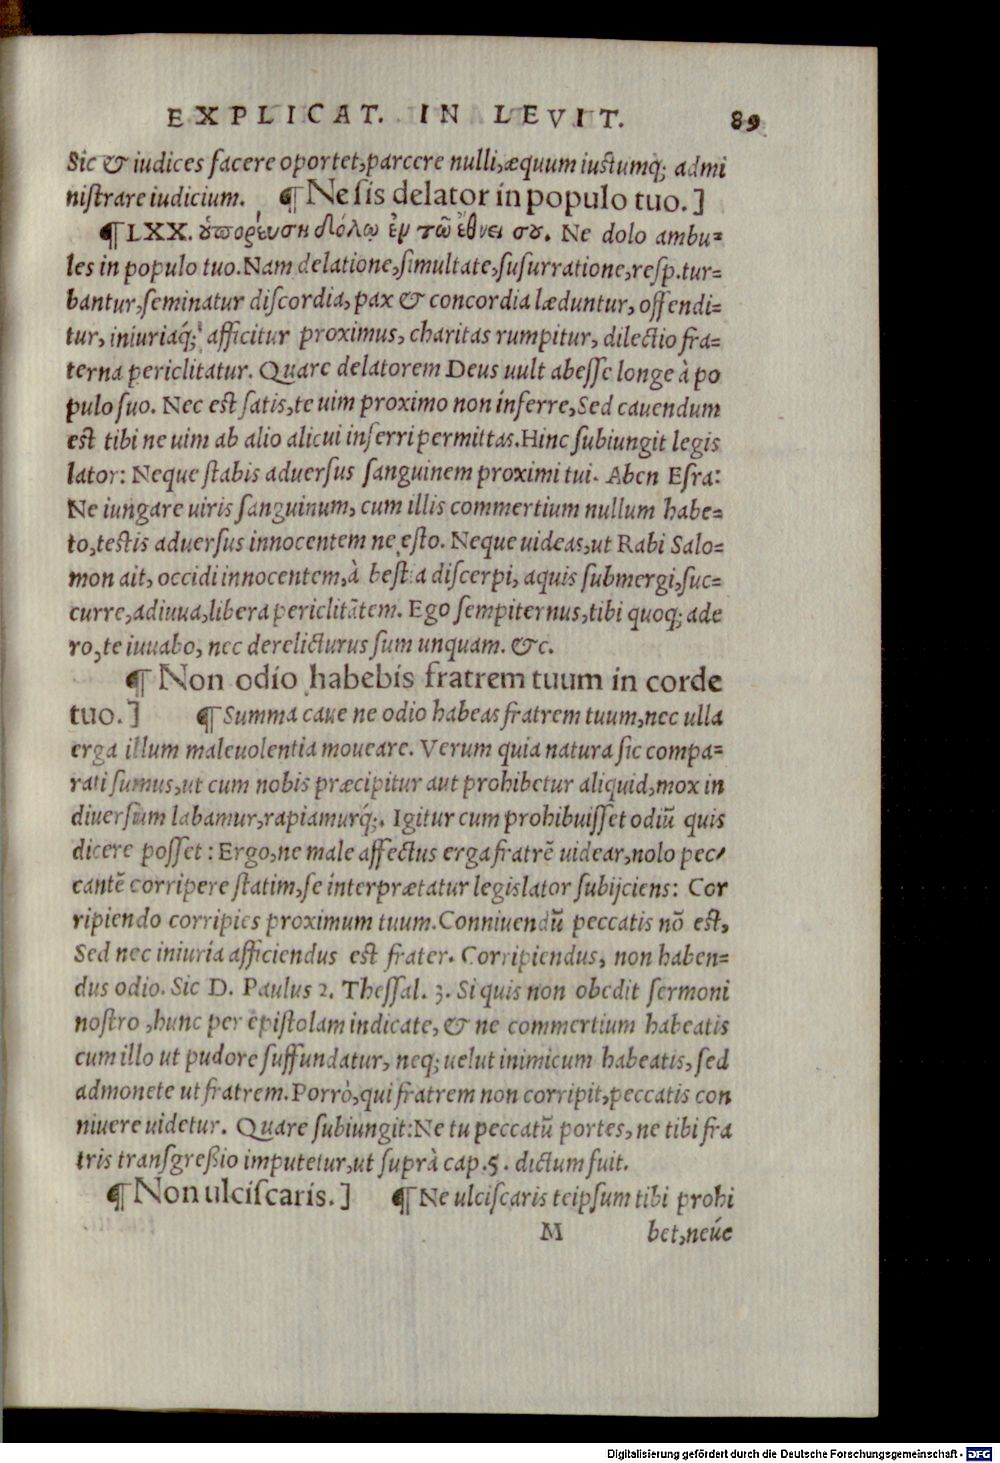 EXPLICAT. IN LEVIT. 89
Sic & iudices facere oportet, parcere nulli, æquum iustumq; admi
nistrare iudicium. ¶ Ne sis delator in populo tuo.]
¶ LXX. οὐ πορεύσῃ δόλῳ ἐν τῷ ἔθνει σου. Ne dolo ambu=
les in populo tuo. Nam delatione, simultate, susurratione, resp. tur=
bantur, seminatur discordia, pax & concordia læduntur, offendi=
tur, iniuriaq́; afficitur proximus, charitas rumpitur, dilectio fra=
terna periclitatur. Quare delatorem Deus uult abesse longe à po
pulo suo. Nec est satis, te uim proximo non inferre, Sed cauendum
est tibi ne uim ab alio alicui inferri permittas. Hinc subiungit legis
lator: Neque stabis aduersus sanguinem proximi tui. Aben Esra:
Ne iungare uiris sanguinum, cum illis commertium nullum habe=
to, testis aduersus innocentem ne esto. Neque uideas, ut Rabi Salo=
mon ait, occidi innocentem, à bestia discerpi, aquis submergi, suc=
curre, adiuua, libera periclitātem. Ego sempiternus, tibi quoq; ade
ro, te iuuabo, nec derelicturus sum unquam. &c.
¶ Non odio habebis fratrem tuum in corde
tuo.] ¶ Summa caue ne odio habeas fratrem tuum, nec ulla
erga illum maleuolentia moueare. Verum quia natura sic compa=
rati sumus, ut cum nobis præcipitur aut prohibetur aliquid, mox in
diuersum labamur, rapiamurq́;. Igitur cum prohibuisset odiũ quis
dicere posset: Ergo, ne male affectus erga fratrẽ uidear, nolo pec/
cantẽ corripere statim, se interprætatur legislator subijciens: Cor
ripiendo corripies proximum tuum. Conniuendũ peccatis nõ est,
Sed nec iniuria afficiendus est frater. Corripiendus, non haben=
dus odio. Sic D. Paulus 2. Thessal. 3. Si quis non obedit sermoni
nostro, hunc per epistolam indicate, & ne commertium habeatis
cum illo ut pudore suffundatur, neq; uelut inimicum habeatis, sed
admonete ut fratrem. Porrò, qui fratrem non corripit, peccatis con
niuere uidetur. Quare subiungit: Ne tu peccatũ portes, ne tibi fra
tris transgreßio imputetur, ut suprà cap. 5. dictum fuit.
¶ Non ulciscaris.] ¶ Ne ulciscaris teipsum tibi prohi
M bet, neúe
Digitalisierung gefördert durch die Deutsche Forschungsgemeinschaft - DFG